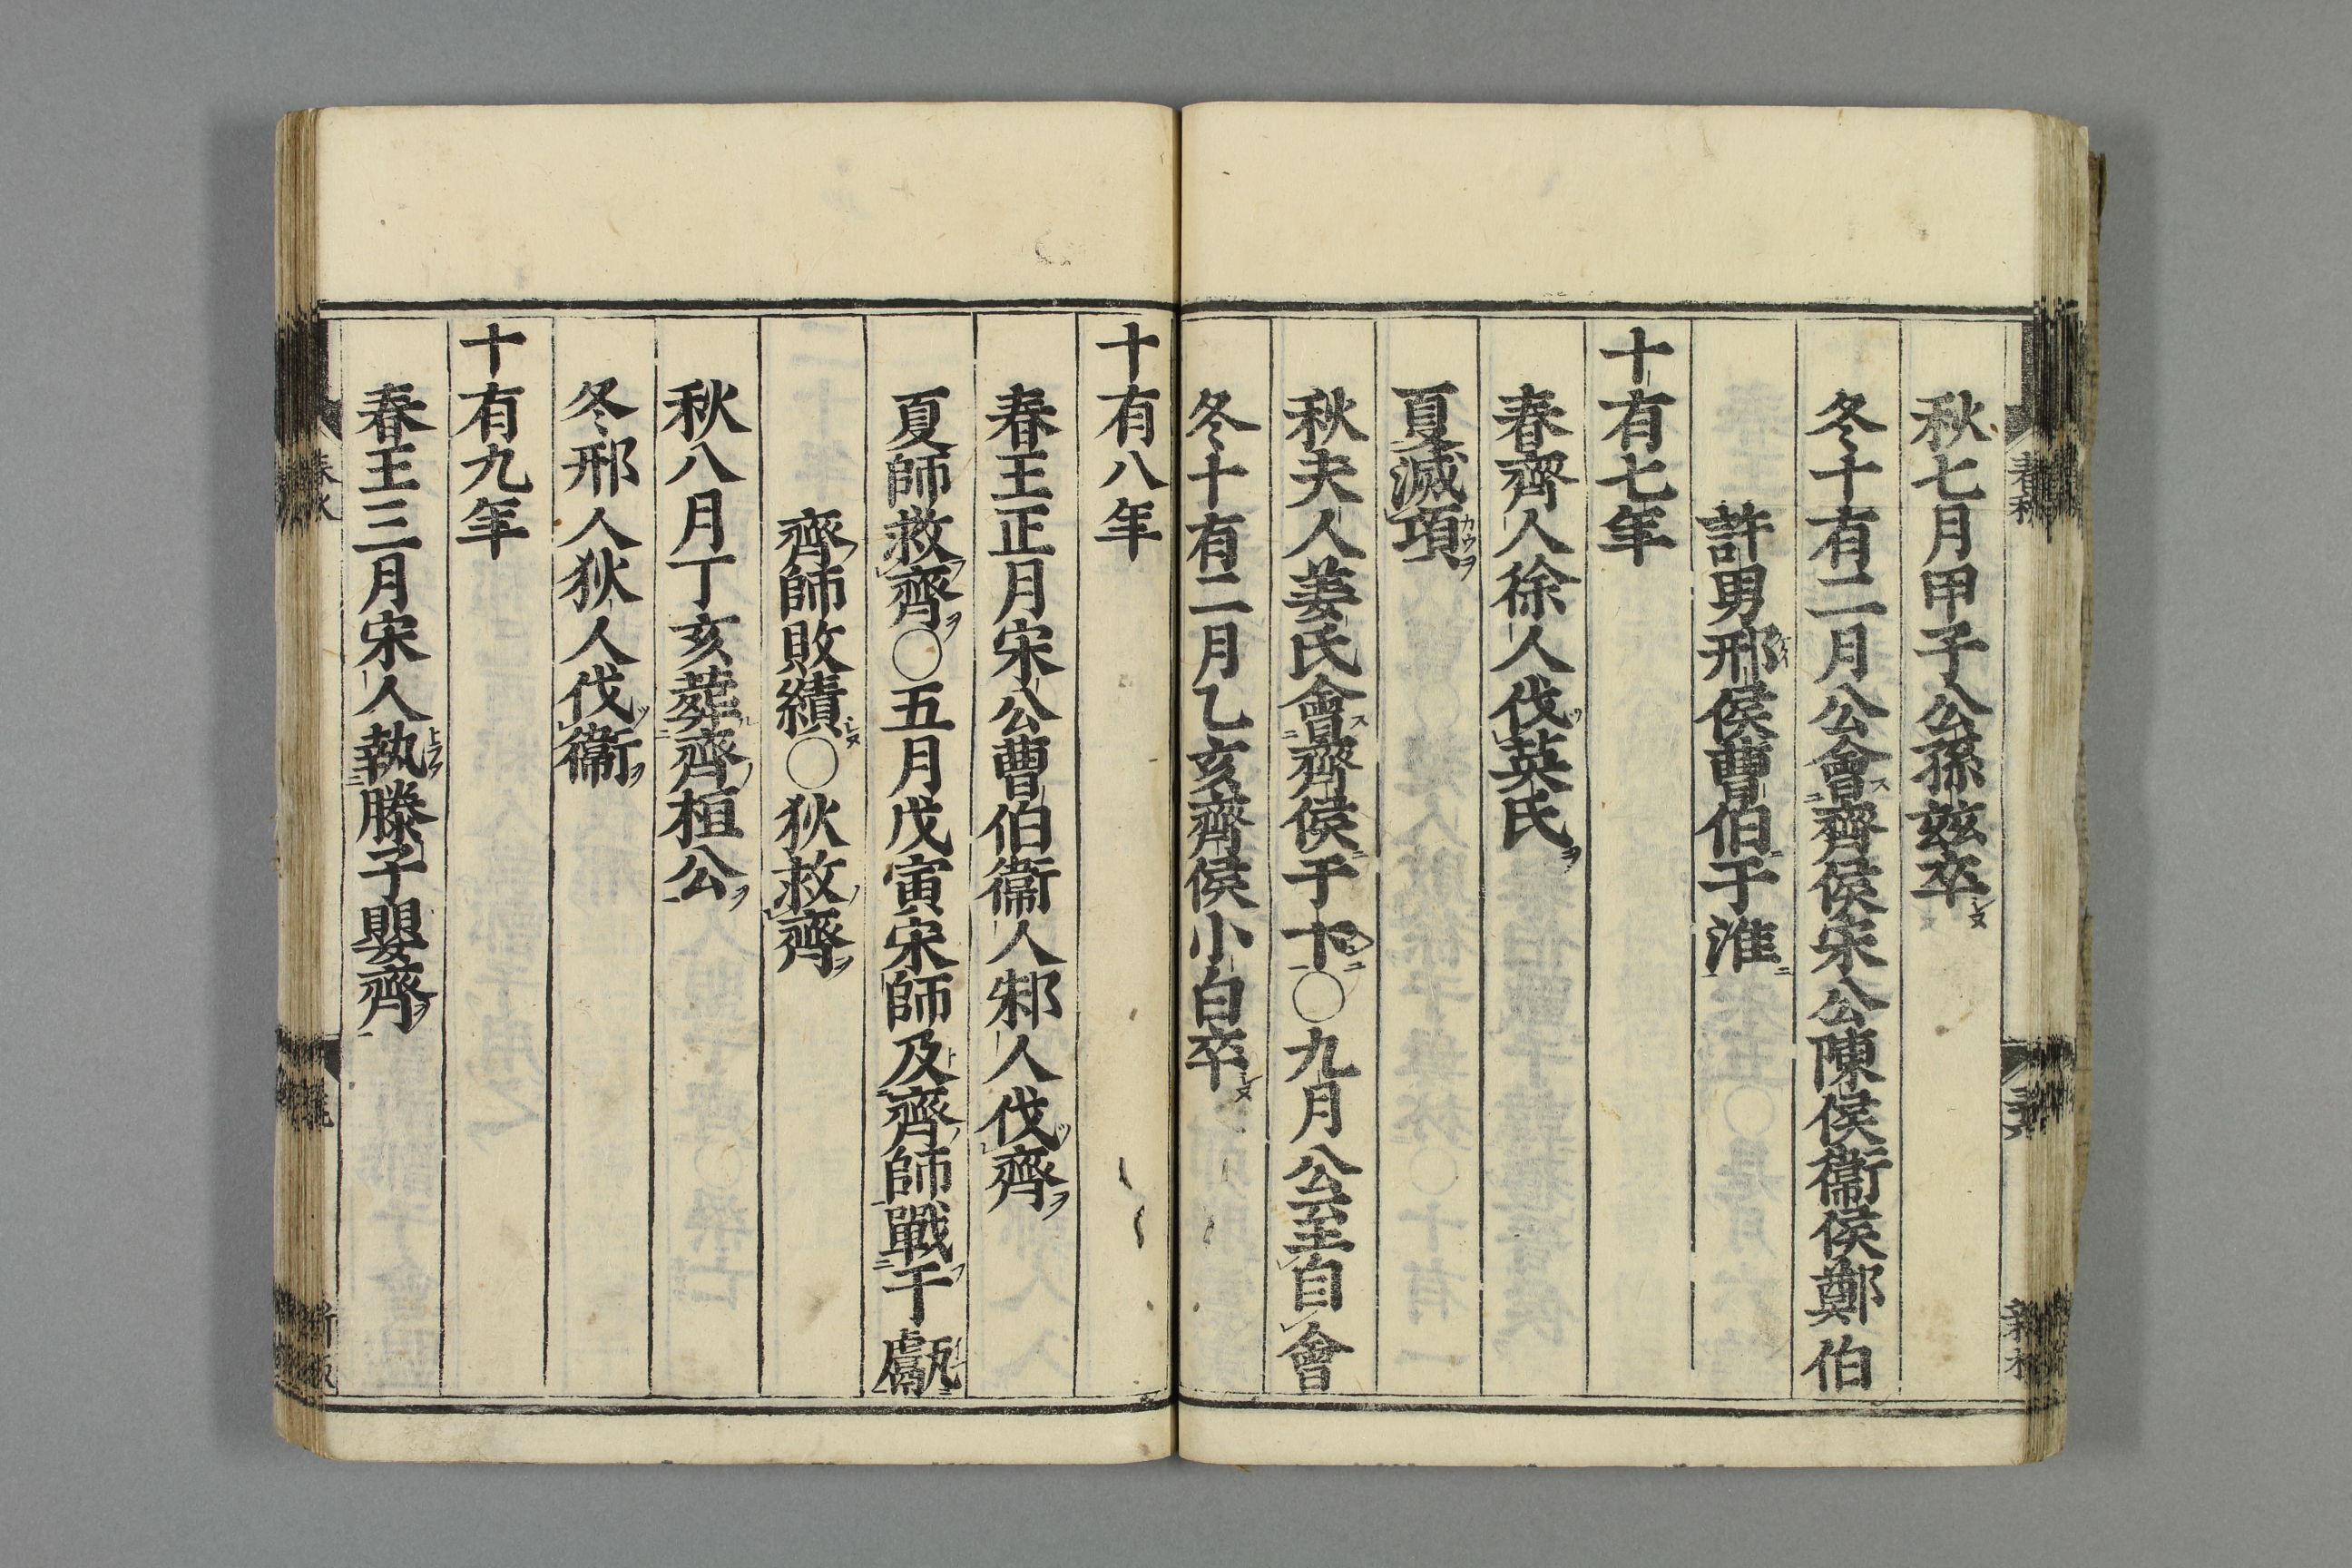 秋七月甲子公孫茲卒
冬十有二月公會齊侯宋公陳侯衞侯鄭伯
許男邢侯曹伯于淮
十有七年
春齊人徐人伐英氏
夏滅項
秋夫人姜氏會齊侯于卞○九月公至自會
冬十有二月乙亥齊侯小白卒
十有八年
春王正月宋公曹伯衞人邾人伐齊
夏師救齊○五月戊寅宋師及齊師戰于甗
齊師敗績○狄救齊
秋八月丁亥葬齊桓公
冬邢人狄人伐衞
十有九年
春王三月宋人執滕子嬰齊